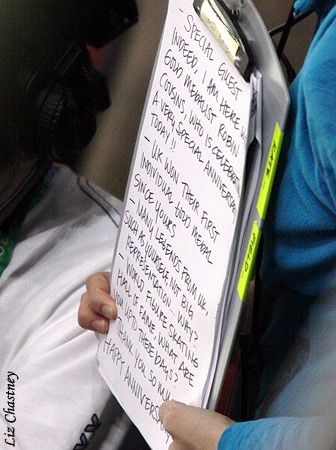 - SPECIAL GUEST
INDEED. I AM HERE W
GOLD MEDALIST ROBIN
COUSINS, WHO IS CELEBRATI
A VERY SPECIAL ANNIVERSAR
TODAY!!
- UK WON THEIR FIRST
INDIVIDUAL GOLD MEDAL
SINCE YOURS
- MANY LEGENDS FROM UK,
SUCH AS YOURSELF. NOT BIG
REPRESENTATION. WHY?
- WORLD FIGURE SKATING
HALL OF FAME. WHAT ARE
YOU UPTO THESE DAYS?
THANK YOU SO MUCH
HAPPY ANNIVERSARY
FIELD
Liz Chastney